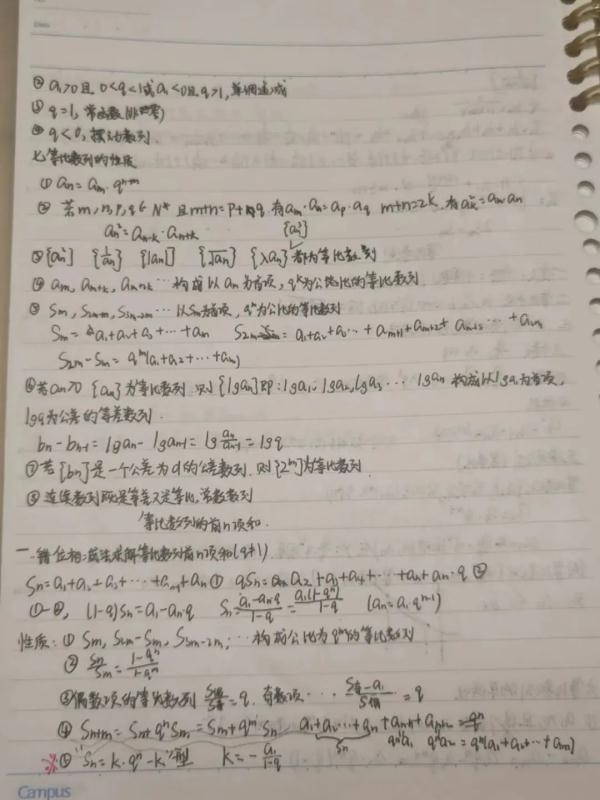 ② a₁>0且 0<q<1或a₁<0且q>1,单调递减
③ q=1, 常函数(非零)
④ q<0, 摆动数列
七.等比数列的性质
① an=am·qⁿ⁻ᵐ
② 若m,n,p,q∈N* 且m+n=p+q 有am·an=ap·aq m+n=2k,有ak²=am an
an²=an-k·an+k {an²}
③{an²} {1/an} {|an|} {√an} {λan}都为等比数列
④ am, am+k, am+2k … 构成以am为首项,qᵏ为公比的等比数列
⑤ Sm, S2m-m, S3m-2m … 以Sm为首项,qᵐ为公比的等比数列
Sm=a₁+a₂+a₃+…+am S2m=a₁+a₂+…+am+1+am+2+…+a2m
S2m-Sm=qᵐ(a₁+a₂+…+am)
⑥若an>0 {an}为等比数列 则{lgan}即:lga₁、lga₂,lga₃… lgan 构成以lga₁为首项,
lgq为公差的等差数列.
bn-bn-1=lgan-lgan-1=lg an/an-1=lgq
⑦若{bn}是一个公差为d的公差数列.则{2^bn}为等比数列
⑧ 连续数列既是等差又是等比,常数数列
等比数列的前n项和.
一.错位相减法求解等比数列前n项和(q≠1)
Sn=a₁+a₂+a₃+…+an-1+an① qSn=a₂+a₃+a₄+…+an+an·q ②
①-②, (1-q)Sn=a₁-anq Sn=(a₁-anq)/(1-q)=a₁(1-qⁿ)/(1-q) (an=a₁qⁿ⁻¹)
性质:① Sm, S2m-Sm, S3m-2m,…构成公比为qᵐ的等比数列
② Sn/Sm=(1-qⁿ)/(1-qᵐ)
③偶数项的等比数列 S偶/S奇=q, 奇数项… (S奇-a₁)/S偶=q
④ Sn+m=Sn+qⁿSm=Sm+qᵐSn a₁+a₂…+an+an+1+an+2
Sn qⁿa₁ qⁿa₂ =qⁿ(a₁+a₂+…+am)
※⑤ "Sn=k·qⁿ-k"型 k=-a₁/(1-q)
Campus